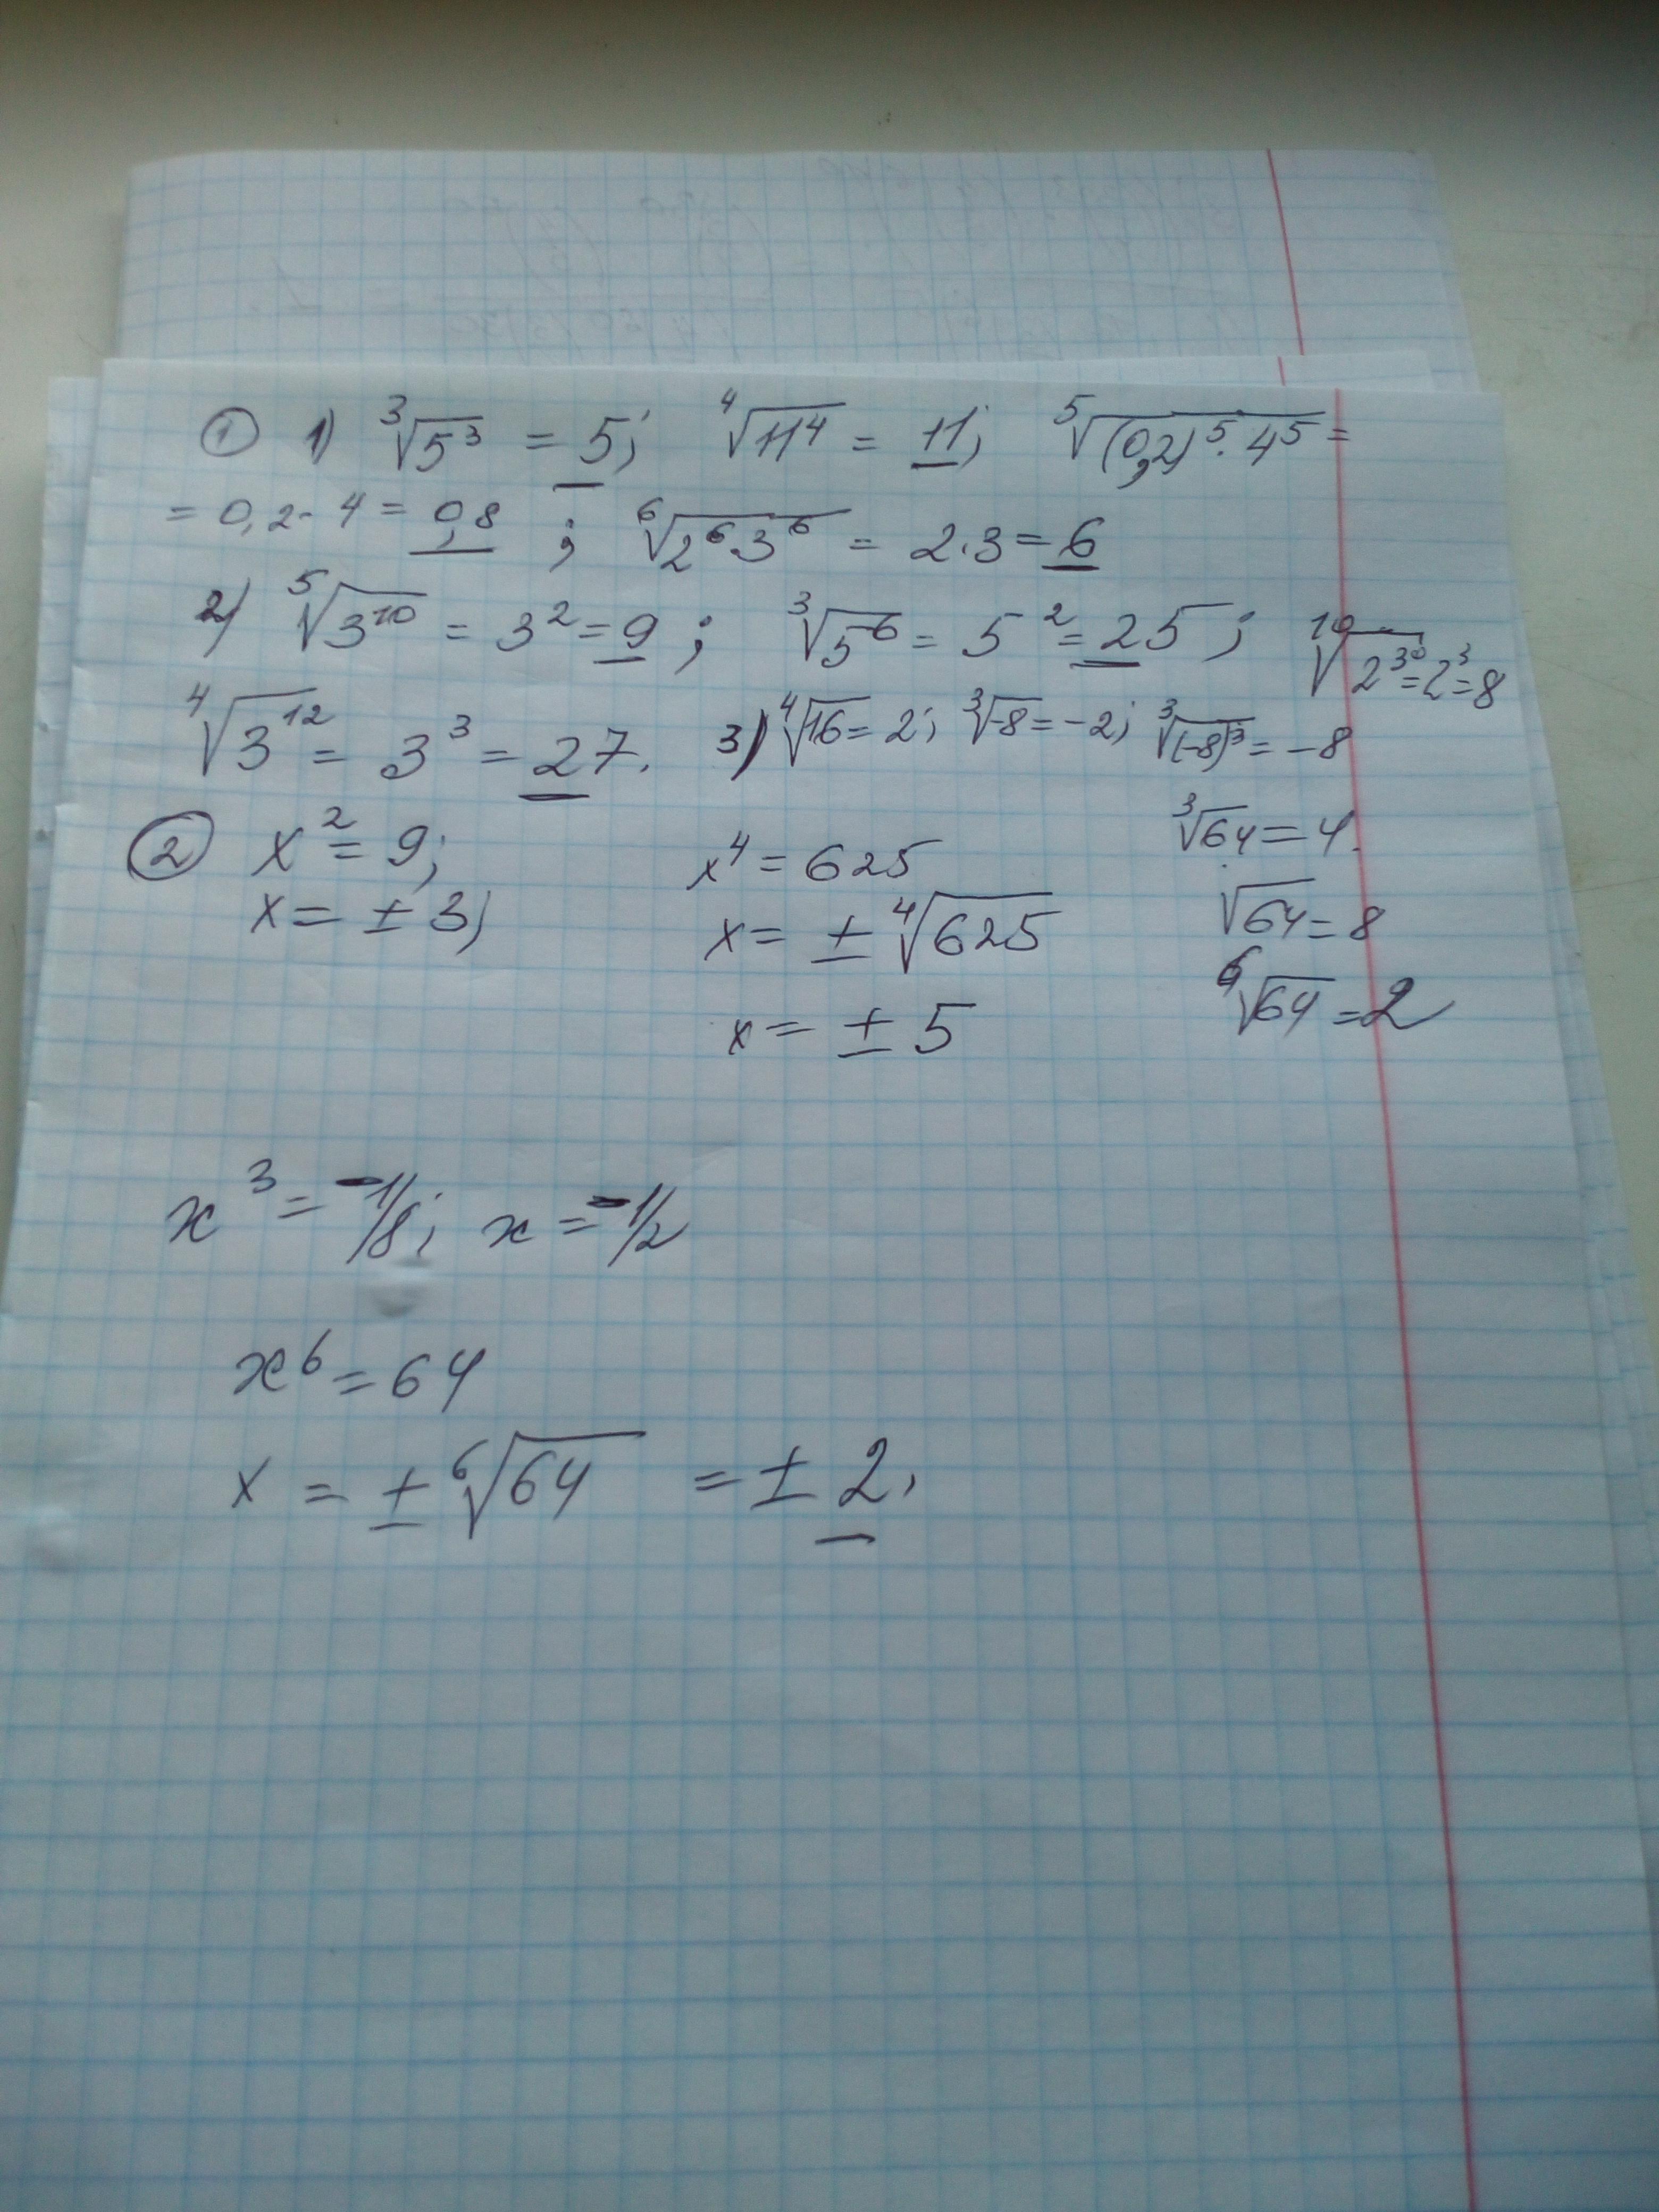 ① 1) ∛5³ = 5; ∜11⁴ = 11; ⁵√(0,2)⁵·4⁵ =
= 0,2·4 = 0,8 ; ⁶√2⁶·3⁶ = 2·3 = 6
2) ⁵√3¹⁰ = 3² = 9 ; ∛5⁶ = 5² = 25 ; ¹⁰√2³⁰ = 2³ = 8
∜3¹² = 3³ = 27. 3) ∜16 = 2; ∛-8 = -2; ∛(-8)³ = -8
∛64 = 4.
√64 = 8
⁶√64 = 2
② x² = 9;
x = ± 3;
x⁴ = 625
x = ± ∜625
x = ± 5
x³ = -1/8; x = -1/2
x⁶ = 64
x = ± ⁶√64 = ± 2.